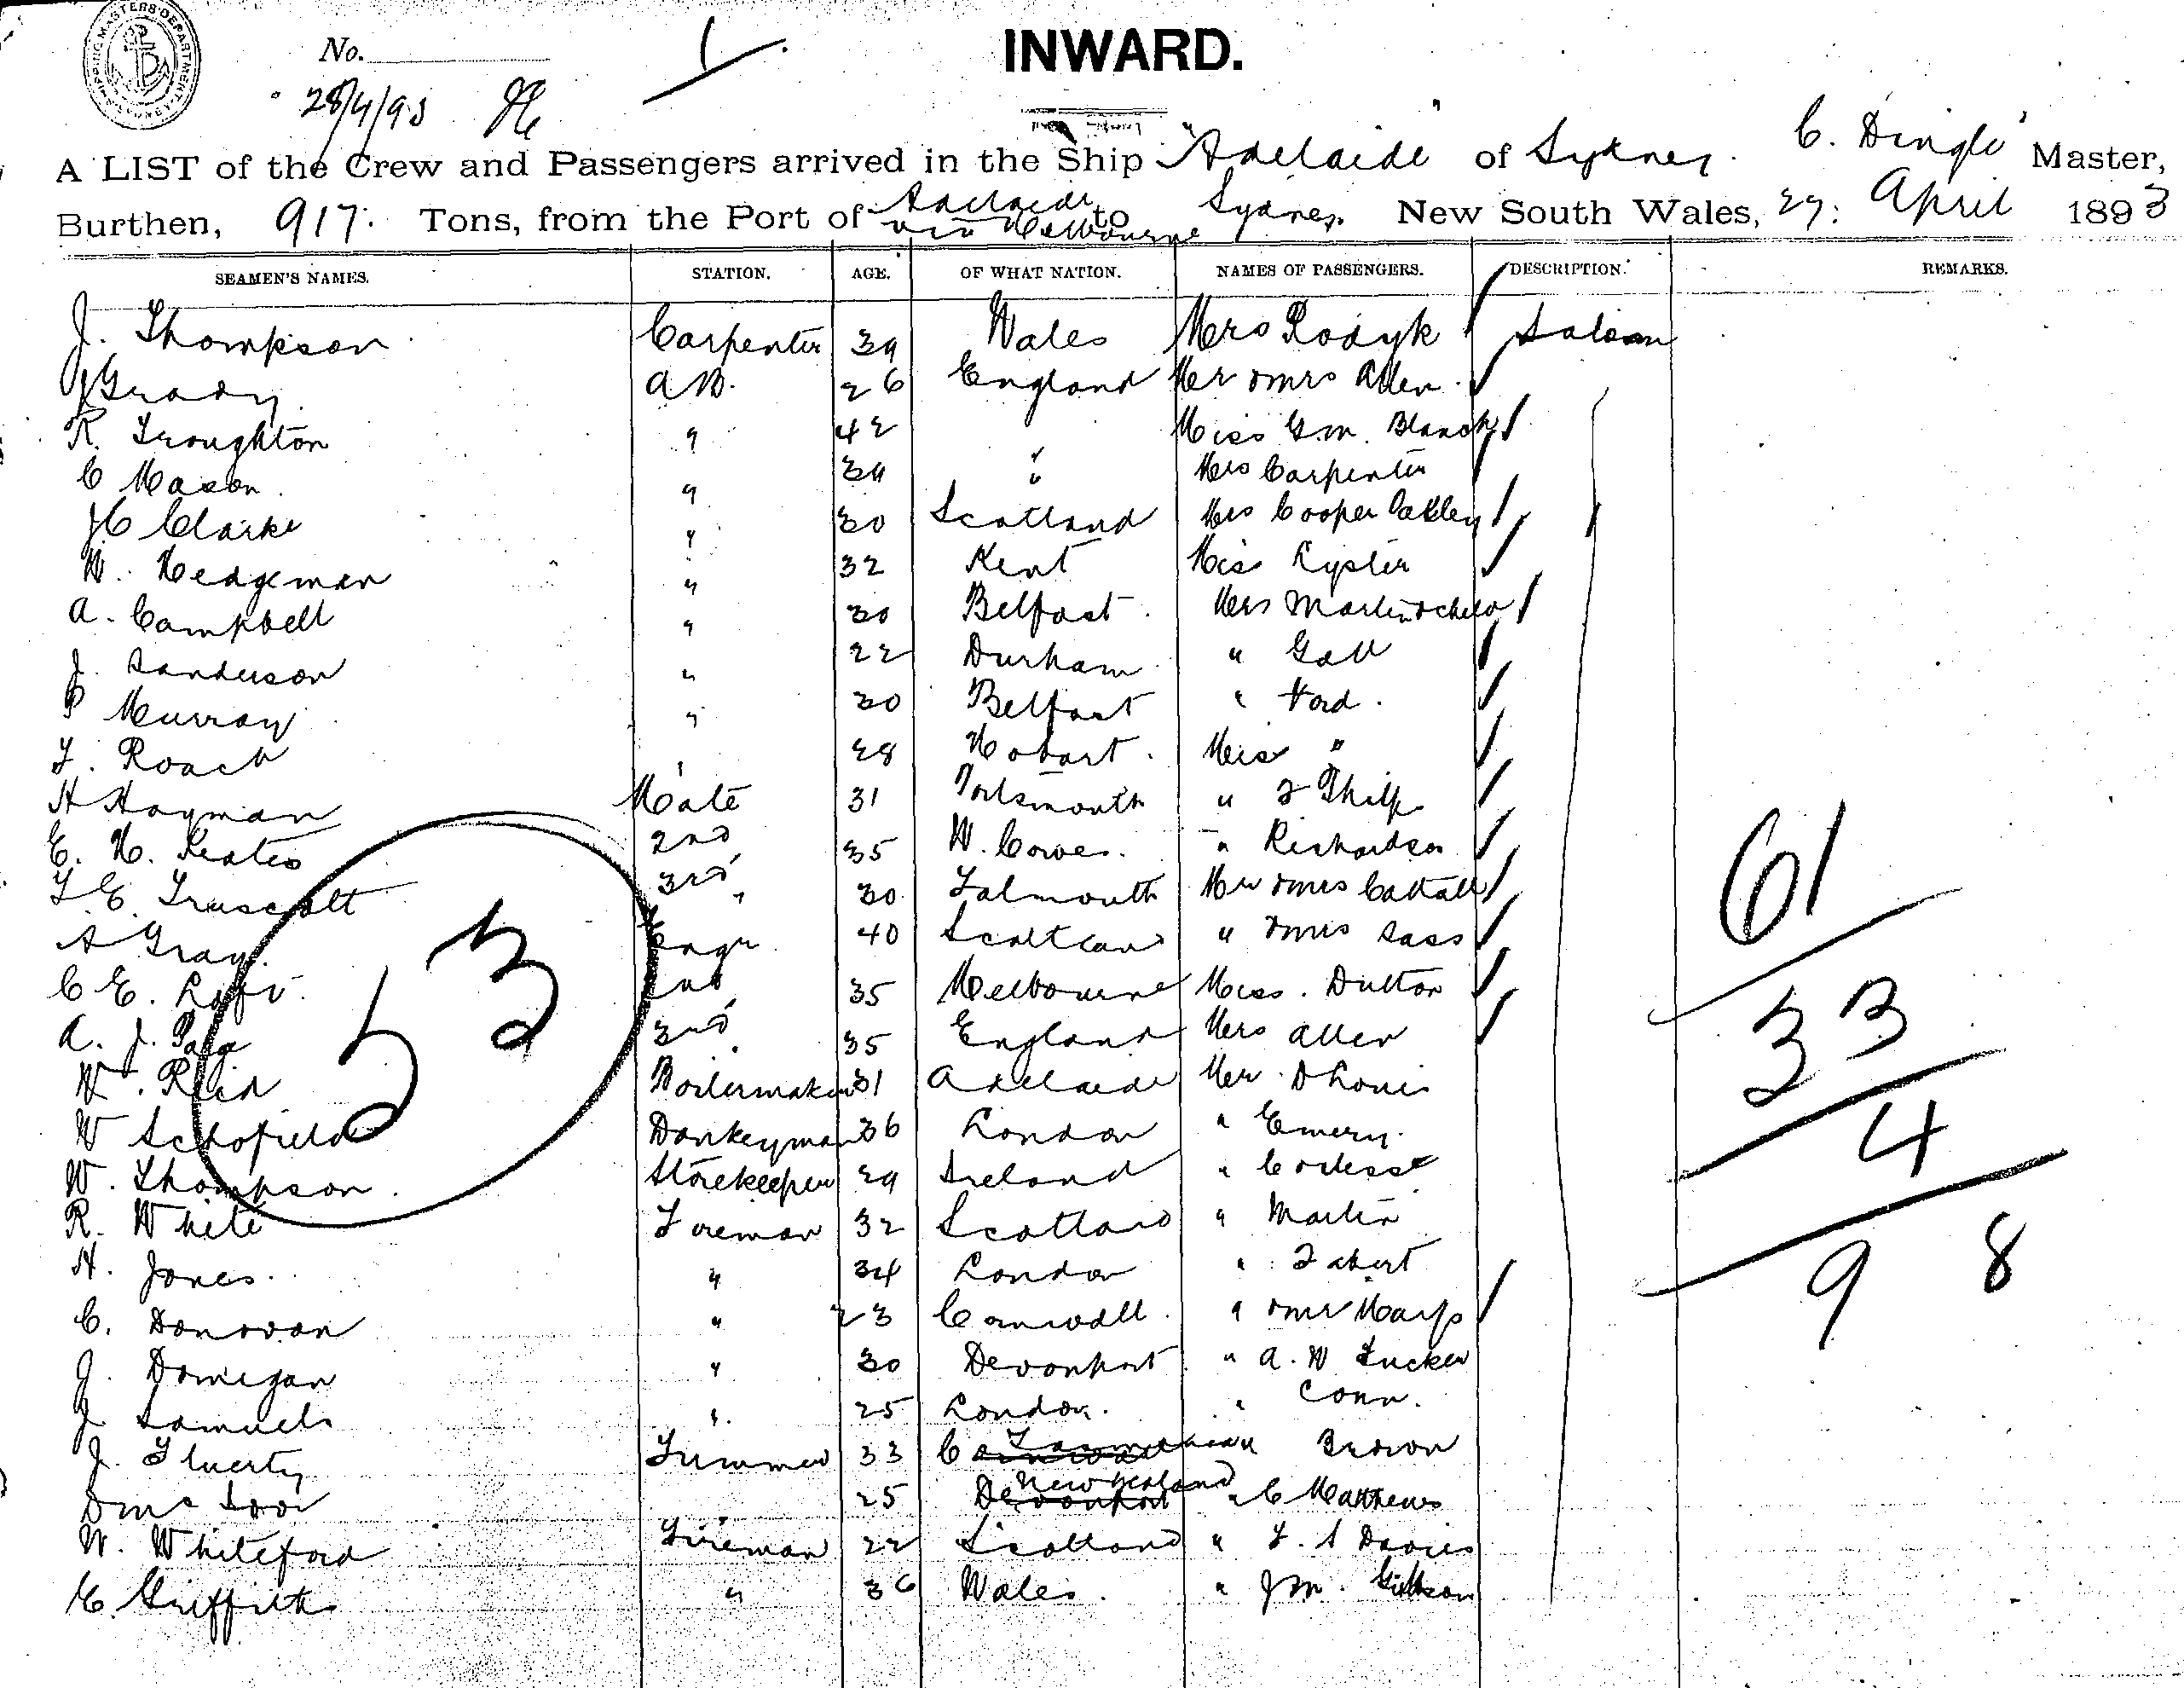 SHIPPING MASTERS DEPARTMENT
No.
28/4/93
INWARD.
A LIST of the Crew and Passengers arrived in the Ship "Adelaide" of Sydney. C. Dingle Master,
Burthen, 917. Tons, from the Port of Adelaide via Melbourne to Sydney. New South Wales, 27: April 1893
SEAMEN'S NAMES. STATION. AGE. OF WHAT NATION. NAMES OF PASSENGERS. DESCRIPTION. REMARKS.
J. Thompson Carpenter 39 Wales Mrs Rodyk Saloon
J Grady A B. 26 England Mr & Mrs Allen
R. Troughton " 42 Miss G.M. Blanch
C Mason " 34 " Mrs Carpenter
J C Clarke " 30 Scotland Mrs Cooper Oakley
W. Hedgeman " 32 Kent Miss Kyster
A. Campbell " 30 Belfast. Mrs Martin & child
J. Sanderson " 22 Durham " Gall
P Murray " 30 Belfast " Ford.
F. Roach " 28 Hobart. Miss "
H Hayman Mate 31 Portsmouth " Philp
E. H. 2nd 35 W. Cowes. " Richardson
F E. Truscott 3rd 30 Falmouth Mr & Mrs
A Gray. Engr. 40 Scotland " & Mrs Sass
C E. 2nd 35 Melbourne Miss. Dutton
A. J. Page 3rd 35 England Mrs Allen
W. Reid Boilermaker 31 Adelaide Mr. D Louis
W Schofield Donkeyman 36 London " Emery.
W. Thompson. Storekeeper 29 Ireland "
R. White Foreman 32 Scotland " Martin
H. Jones. " 34 London "
C. Donovan " 23 Cornwall. " & Mrs
J. Donegan " 30 Devonport " A. W Tucker
J Samuels " 25 London. " Conn.
J. Fluerty Trimmer 33 Cornwall Tasmania " Brown
D Mc 25 Devonport New Zealand " C Matthews
W. Whiteford Fireman 22 Scotland " F. S Davies
E. Griffiths " 36 Wales. " J M. Gibson
53
61
33
4
98